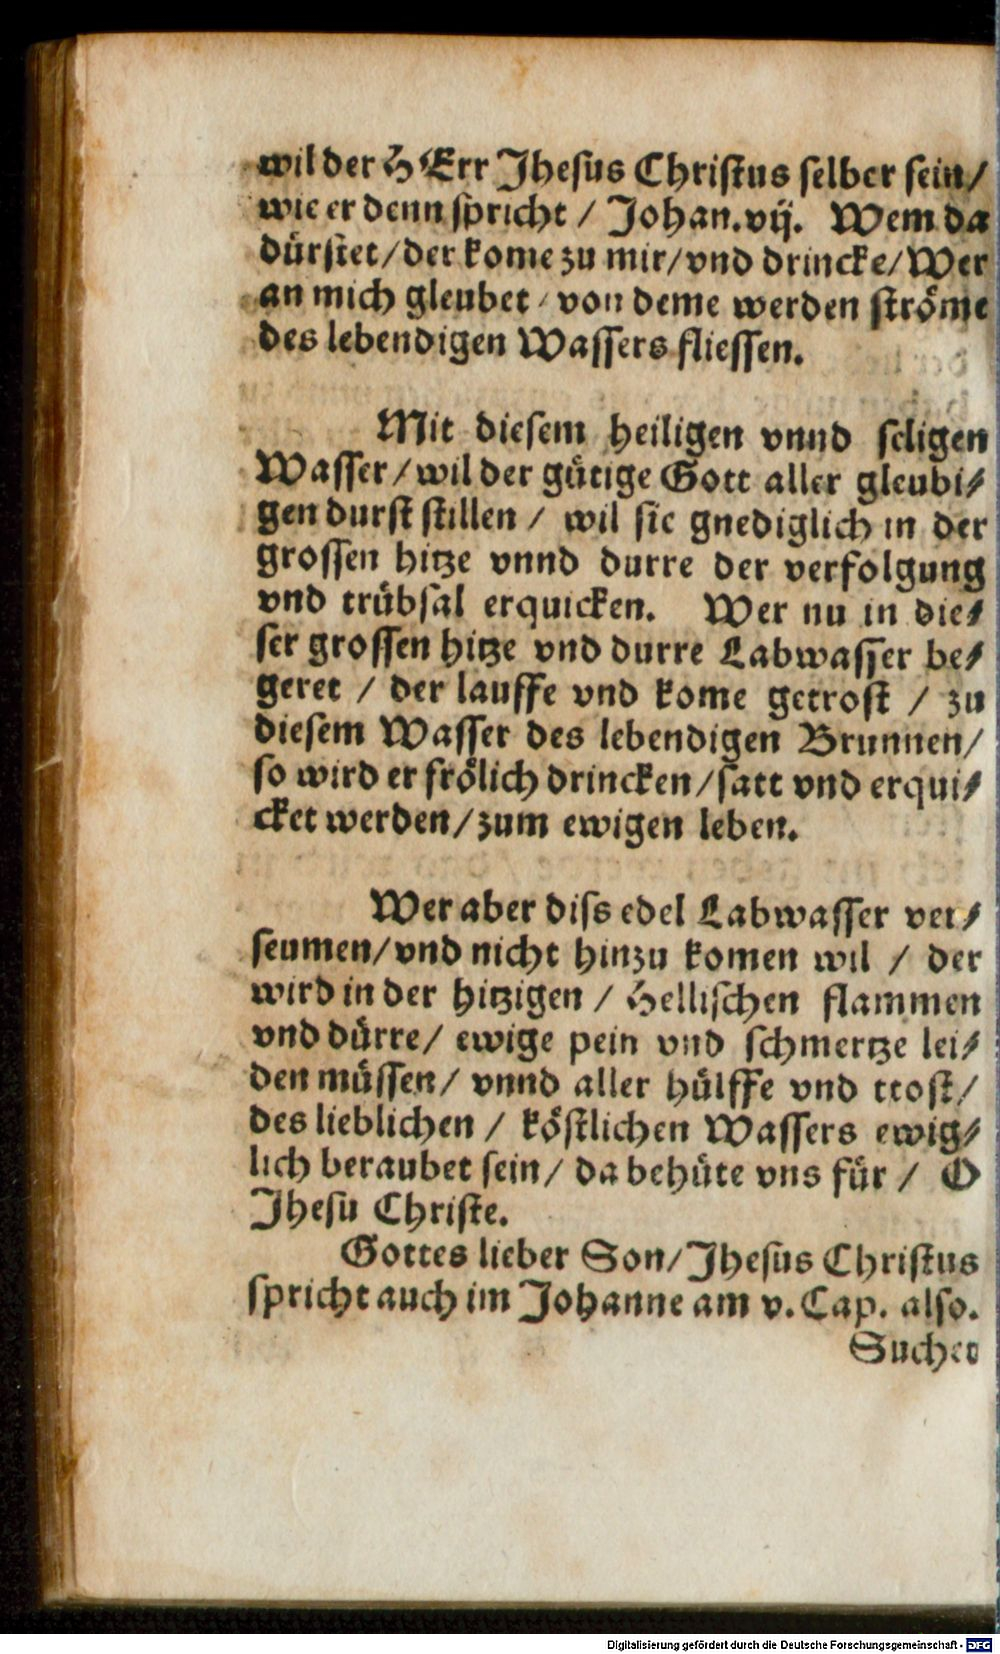 wil der HErr Jhesus Christus selber sein/
wie er denn spricht / Johan. vij. Wem da
dürstet/ der kome zu mir/ vnd drincke/ Wer
an mich gleubet / von deme werden ströme
des lebendigen Wassers fliessen.
Mit diesem heiligen vnnd seligen
Wasser / wil der gütige Gott aller gleubi-
gen durst stillen / wil sie gnediglich in der
grossen hitze vnnd durre der verfolgung
vnd trübsal erquicken. Wer nu in die-
ser grossen hitze vnd durre Labwasser be-
geret / der lauffe vnd kome getrost / zu
diesem Wasser des lebendigen Brunnen/
so wird er frölich drincken/ satt vnd erqui-
cket werden/ zum ewigen leben.
Wer aber diss edel Labwasser ver-
seumen/ vnd nicht hinzu komen wil / der
wird in der hitzigen / Hellischen flammen
vnd dürre/ ewige pein vnd schmertze lei-
den müssen/ vnnd aller hülffe vnd trost/
des lieblichen / köstlichen Wassers ewig-
lich beraubet sein/ da behüte vns für / O
Jhesu Christe.
Gottes lieber Son/ Jhesus Christus
spricht auch im Johanne am v. Cap. also.
Suchet
Digitalisierung gefördert durch die Deutsche Forschungsgemeinschaft - DFG